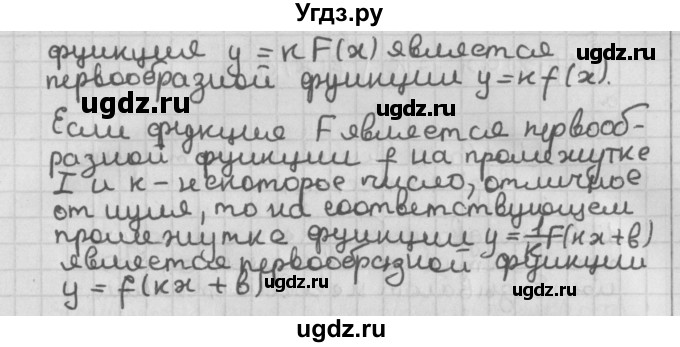 Угдз.ру
функция y = кF(x) является
первообразной функции y=кf(x).
Если функция F является первооб-
разной функции f на промежутке
I и к - некоторое число, отличное
от нуля, то на соответствующем
промежутке функции y = 1/к F(кx+в)
является первообразной функции
y = f(кx + в)
ugdz.ru
ugdz.ru
ugdz.ru
ugdz.ru
ugdz.ru
ugdz.ru